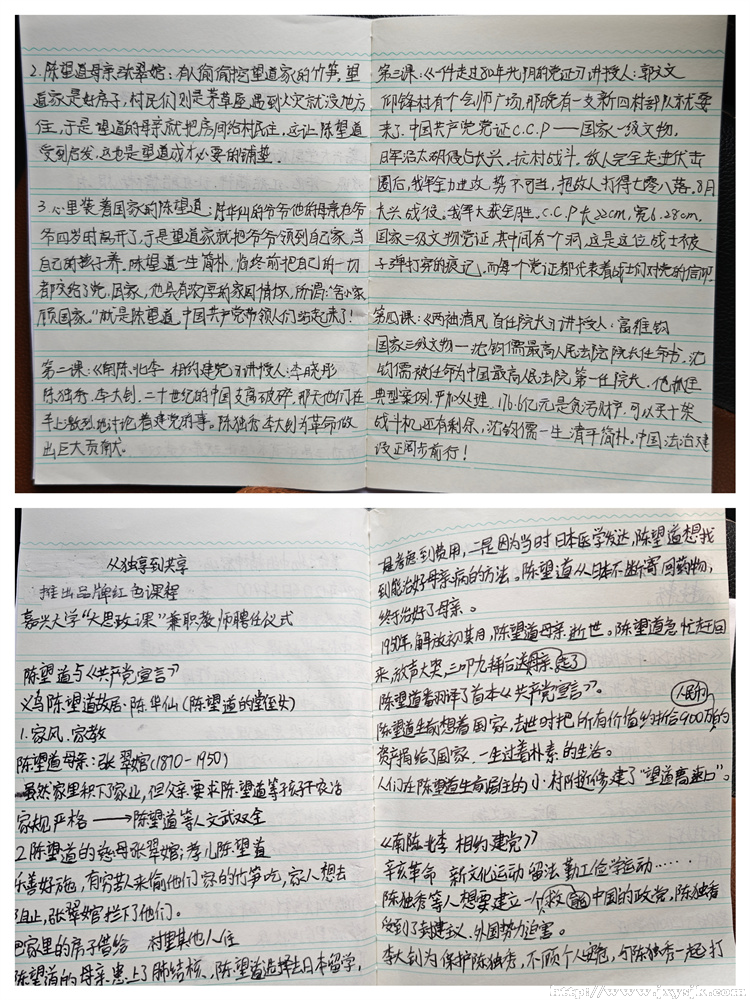 2.陈望道母亲张翠婠:有人偷偷挖望道家的竹笋,望
道家是好房子,村民们则是茅草屋,遇到火灾就没地方
住,于是望道的母亲就把房间给村民住,这让陈望道
受到启发,这也是望道成才必要的铺垫。
3.心里装着国家的陈望道:陈华仙的爷爷他的母亲在爷
爷四岁时离开了,于是望道家就把爷爷领到自己家,当
自己的孩子养。陈望道一生简朴,临终前把自己的一切
都交给了党、国家,他具有浓厚的家国情怀,所谓:“舍小家
顾国家。”就是陈望道,中国共产党带领人们站起来了!
第二课:《南陈北李 相约建党》讲授人:李晓彤
陈独秀、李大钊,二十世纪的中国支离破碎,那天他们在
车上激烈地讨论着建党的事。陈独秀李大钊为革命做
出巨大贡献。
第三课:《一件走过80年光阴的党证》讲授人:郭文文
仰锋村有个会师广场,那晚有一支新四村部队就要
来了,中国共产党党证C.C.P——国家一级文物,
日军沿太湖侵占长兴。抗村战斗。敌人完全走进伏击
圈后,我军全力进攻,势不可当,把敌人打得七零八落。8月
长兴战役。我军大获全胜。C.C.P长22cm,宽6.28cm。
国家二级文物党证,其中间有个洞,这是这位战士被
子弹打穿的痕记。而每个党证都代表着战士们对党的信仰
第四课:《两袖清风 首任院长》讲授人:富雅钧
国家三级文物—沈钧儒最高人民法院院长任命书,沈
钧儒被任命为中国最高人民法院第一任院长。他抓住
典型案例,严加处理。176.6亿元是贪污财产,可以买十架
战斗机还有剩余,沈钧儒一生清平简朴,中国法治建
设正阔步前行!
从独享到共享
推出品牌红色课程
嘉兴大学“大思政课”兼职教师聘任仪式
陈望道与《共产党宣言》
义乌陈望道故居·陈华仙(陈望道的堂侄女)
1.家风、家教
陈望道母亲:张翠婠(1870-1950)
虽然家里积下了家业,但父亲要求陈望道等孩子干农活
家规严格→陈望道等人文武双全
2.陈望道的慈母张翠婠,孝儿陈望道
乐善好施,有穷苦人来偷他们家的竹笋吃,家人想去
阻止,张翠婠拦下了他们。
把家里的房子借给 村里其他人住
陈望道的母亲患上了肺结核,陈望道选择去日本留学,
一是考虑到费用,二是因为当时日本医学发达,陈望道想找
到能治好母亲病的方法。陈望道从日本不断寄回药物,
终于治好了母亲。
1950年,解放初其月,陈望道母亲逝世。陈望道急忙赶回
来,放声大哭,三叩九拜后送母亲走了
陈望道翻译了首本《共产党宣言》。
陈望道生前想着国家,去世时把所有价值约折合900万的人民币
资产捐给了国家,一生过着朴素的生活。
人们在陈望道生前居住的小村附近修建了“望道高速口”。
《南陈北李 相约建党》
辛亥革命 新文化运动 留法勤工俭学运动……
陈独秀等人想要建立一个能救中国的政党,陈独秀
受到了封建主义、外国势力迫害。
李大钊为保护陈独秀,不顾个人安危,与陈独秀一起打
http://www.jxysjk.com